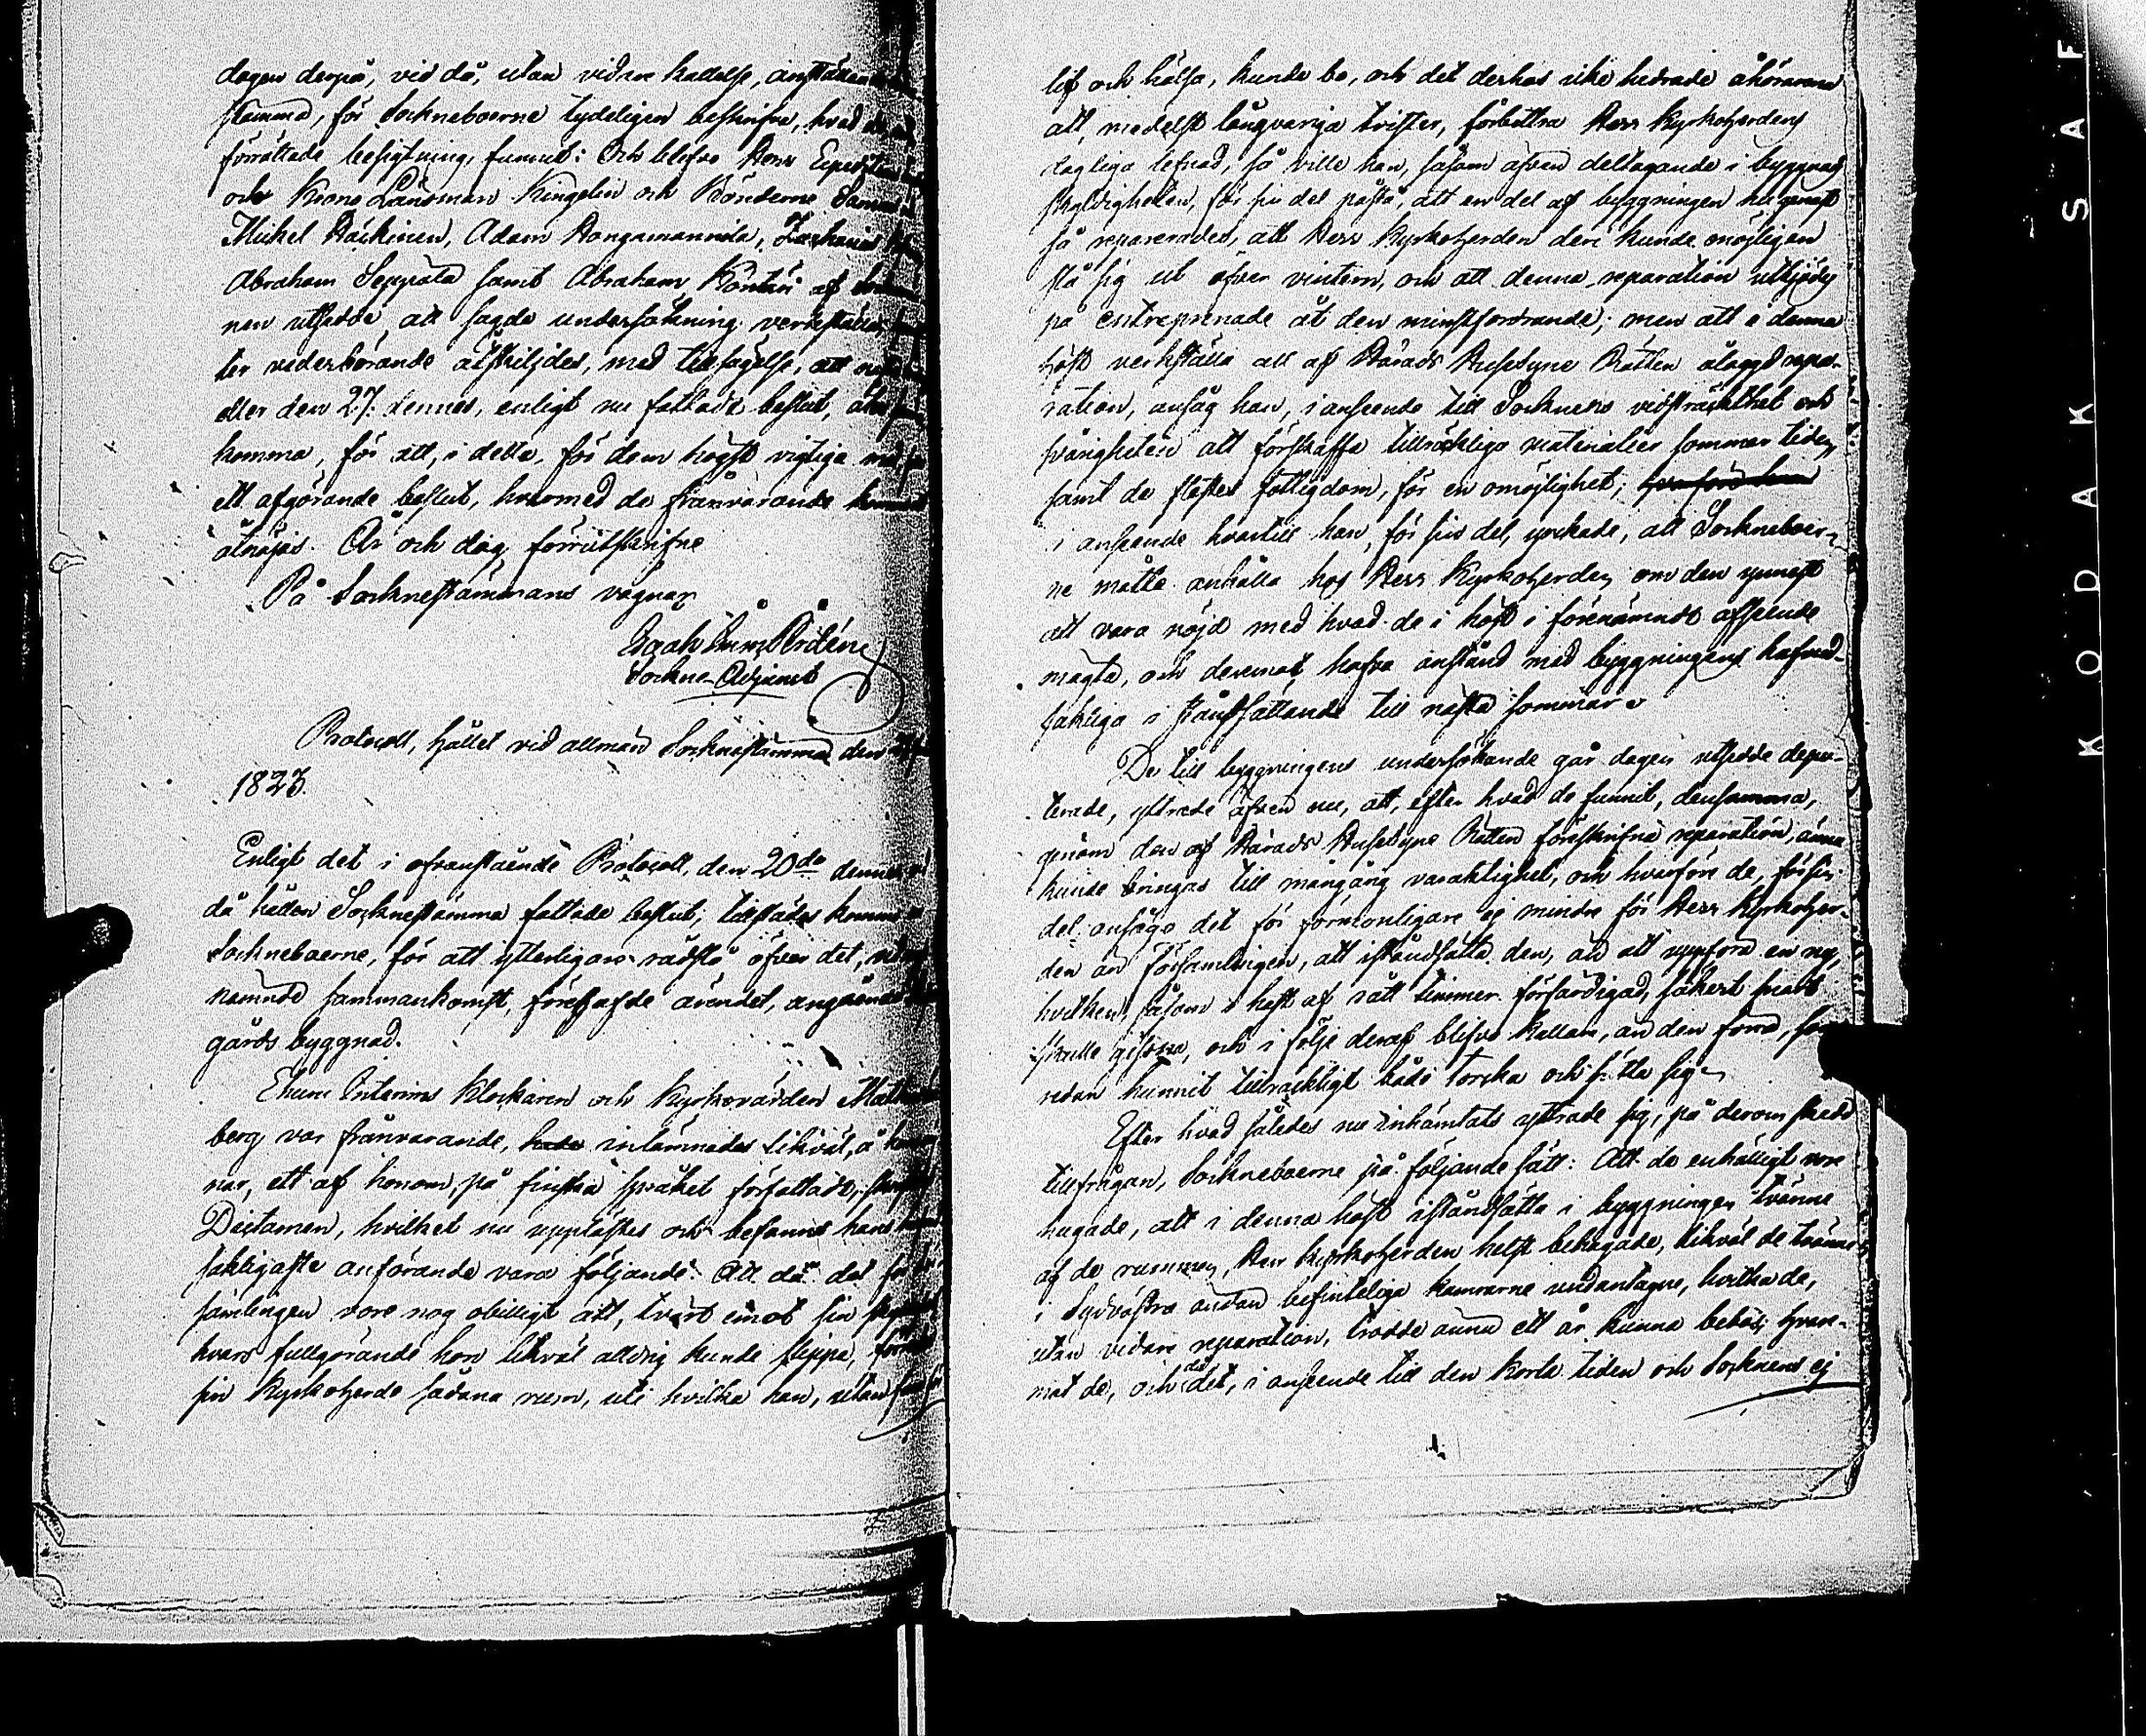 dagen derpå, vid då, utan vidare kallelse, anställande
stämma, för Sockneboerne tydeligen beskrifva, hvad de vid
förrättade besigtning, funnit: Och blefvo Herr Expeditions
och Krono Länsman Kingelin och Bönderne Samuel
Mickel Häckinen, Adam Hangamannila, Zacharias
Abraham Seppälä samt Abraham Köntäri af Sock
nen utsedde att sagde undersökning verkställa,
ter vederbörande åtskiljdes, med tillsägelse, att
eller den 27. dennes, enligt nu fattade beslut, åter
komma, för att, i detta, för dem högst vigtiga mål,
ett afgörande beslut, hvarmed de frånvarande
åtnöjas. År och dag förrutskrifne
På Socknestämmans vägnar
Isaak Ordéni
Sockne-Adjunct
Protocoll, hållet vid allmän Socknestämma den
1823.
Enligt det i ofvanstående Protocoll, den 20de dennes vid
då hållen Socknestämma fattade beslut, tillstädes kommo
Sockneboerne, för att ytterligare rådslå öfver det, vid
nämnde sammankomst, förehafde ärendet, angående
gårds byggnad.
Ehuru Interims Klockaren och Kyrkovärden Math
berg var frånvarande, inlämnades likväl, å
nar, ett af honom, på finska språket författadt, skrifteligt
Dictamen, hvilket nu upplästes och befanns hans
sakligaste anförande vara följande: Att då det för
samlingen vore nog obilligt att, tvärt emot sin skyldighet
hvars fullgörande hon likväl aldrig kunde slippa,
sin Kyrkoherde sådana rum, uti hvilka han, utan
lif och hälsa, kunde bo, och det derhos icke hedrade åhörarne
att, medelst långvariga tvister, förbittra Herr Kyrkoherdens
dagliga lefnad, så ville han, såsom äfven deltagande i byggnads
skyldigheten, för sin del påstå, att en del af byggningen nu genast
så reparerades, att Herr Kyrkoherden deri kunde möjligen
slå sig ut öfver vintern, och att denna reparation utbjöds
på entreprenade åt den minstfordrande; men att i denna
höst verkställa all af Härads Husesyne Rätten ålaggd repa-
ration, ansåg han, i anseende till Socknens vidsträckthet och
svårigheten att förskaffa tillräckliga materialier sommar tiden,
samt de flestes fattigdom, för en omöjlighet; hvarföre han
i anseende hvartill han, för sin del, yrkade, att Sockneboer-
ne måtte anhålla hos Herr Kyrkoherden om den ynnest
att vara nöjd med hvad de i höst i förenämnde afseende
mägta, och deremot hafva anstånd med byggningens hufvud-
sakliga i ståndsättande till nästa sommar.
De till byggningens undersökande går dagen utsedde depu-
terade, yttrade äfven nu, att, efter hvad de funnit, densamma,
genom den af Härads Husesyne Rätten föreskrifna reparation, ännu
kunde bringas till mångårig varaktighet, och hvarföre de, för sin
del ansågo det för förmonligare ej mindre för Herr Kyrkoher-
den än Församlingen, att iståndsätta den, än att uppföra en ny,
hvilken, såsom i hast af rått timmer förfärdigad, säkert snart
skulle gistna, och i följe deraf blifva kallare, än den forna, som
redan hunnit tillräckligt både torcka och sätta sig.
Efter hvad således nu inhämtats yttrade sig, på derom skedd
tillfrågan, Sockneboerne på följande sätt: Att de enhälligt voro
hugade, att i denna höst iståndsätta i byggningen tvänne
af de rummen, Herr Kyrkoherden helst behagade, likväl de tvänne
i Sydvästra ändan befinteliga kamrarne undantagne, hvilka de,
utan vidare reparation, trodde ännu ett år kunna bebos; hvare-
mot de, och då det, i anseende till den korta tiden och Socknens ej